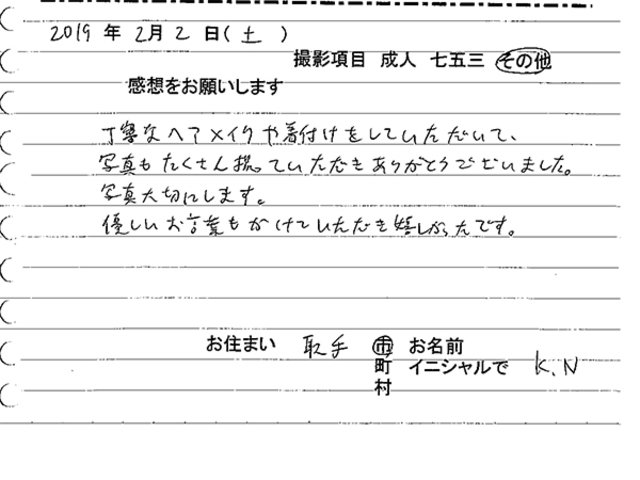 2019年 2月 2日(土)
撮影項目 成人 七五三 その他
感想をお願いします
丁寧なヘアメイクや着付けをしていただいて、
写真もたくさん撮っていただきありがとうございました。
写真大切にします。
優しいお言葉もかけていただき嬉しかったです。
お住まい 取手 市 お名前
町 イニシャルで K.N
村